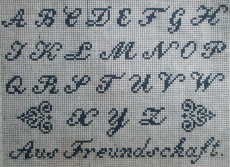 A B C D E F G H
I K L M N O P
Q R S T U V W
X Y Z
Aus Freundschaft.